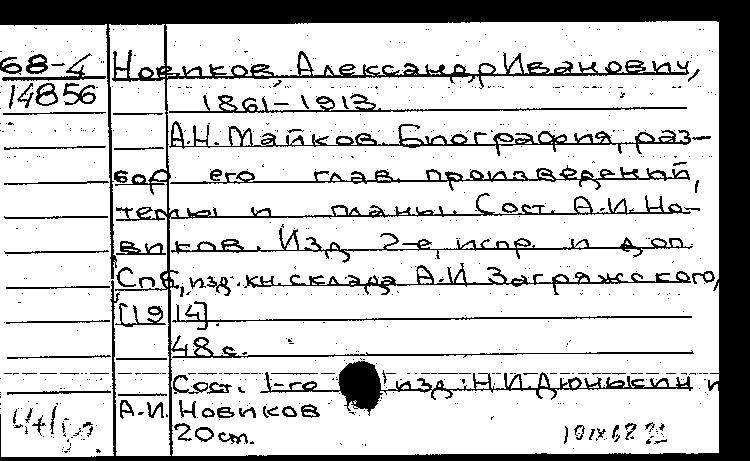 68-4 Новиков, Александр Иванович,
14856 1861-1913.
А.Н. Майков. Биография, раз-
бор его глав. произведений,
темы и планы. Сост. А.И. Но-
виков. Изд. 2-е, испр. и доп.
Спб, изд. кн. склада А.И. Загряжского,
[1914].
48 с.
Сост. 1-го изд.: Н.И. Дюнькин и
А.И. Новиков
20 см.